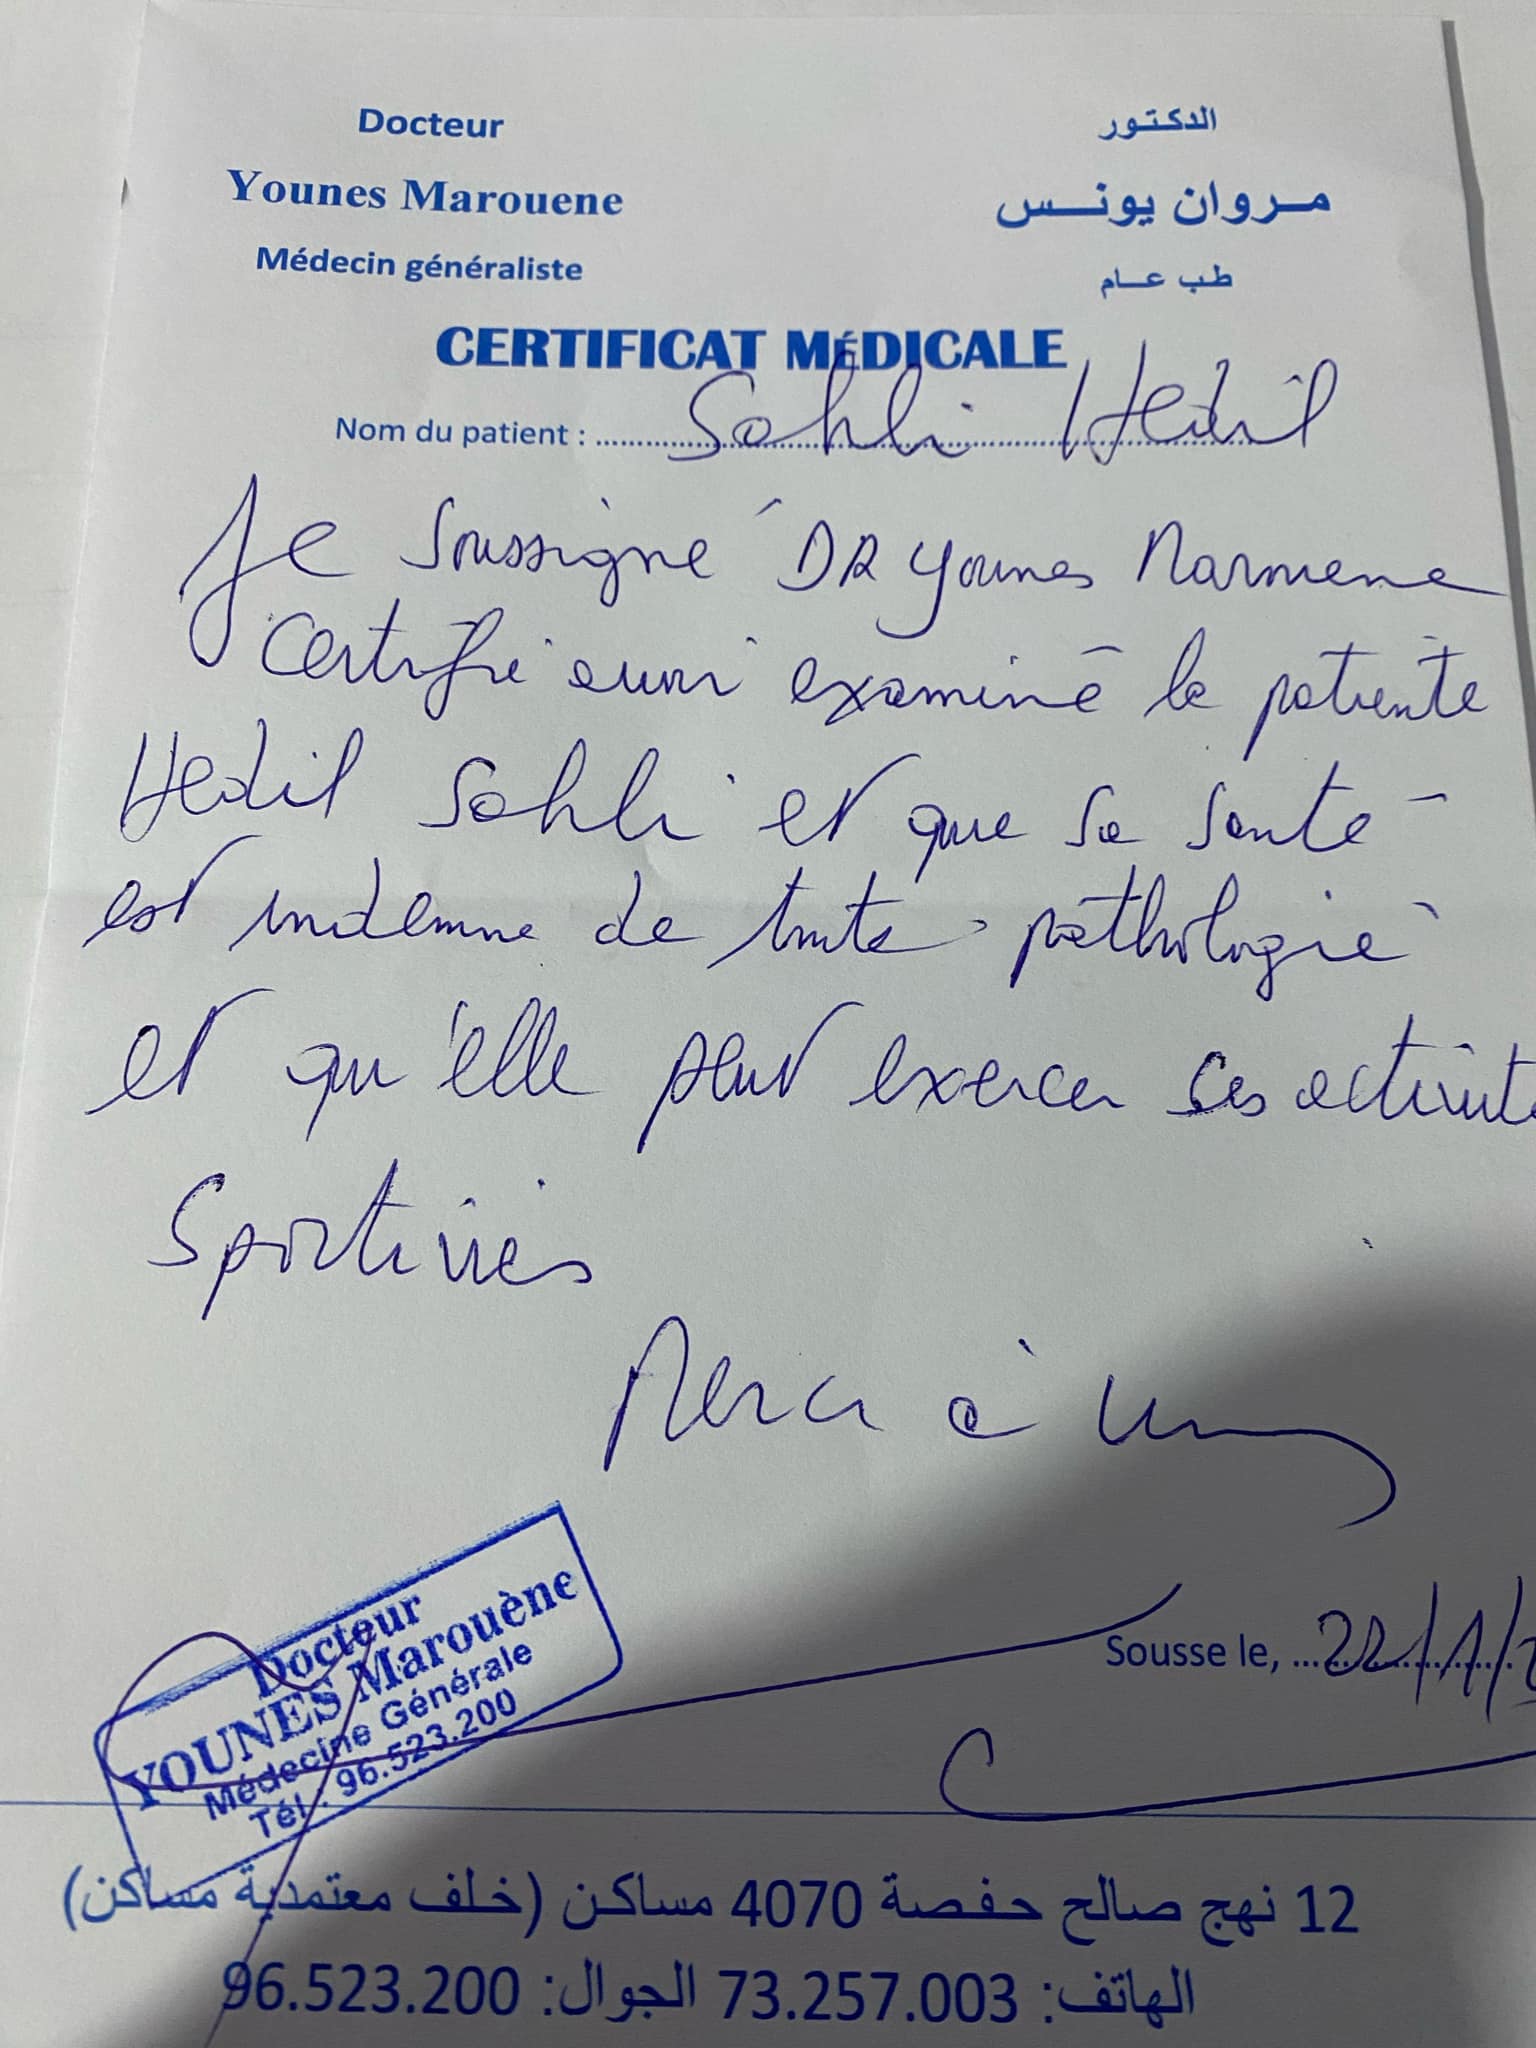 Docteur
الدكتور
Younes Marouene
مروان يونس
Médecin généraliste
طب عام
CERTIFICAT MÉDICALE
Nom du patient : Sahli Hedil
Je soussigné DR Younes Marouene
certifie avoir examiné la patiente
Hedil Sahli et que sa santé
est indemne de toute pathologie
et qu'elle peut exercer ses activité
Sportives
Merci à
Docteur
YOUNES Marouène
Médecine Générale
Tél : 96.523.200
Sousse le, 22/1/2
12 نهج صالح حفصة 4070 مساكن (خلف معتمدية مساكن)
الهاتف: 73.257.003 الجوال: 96.523.200